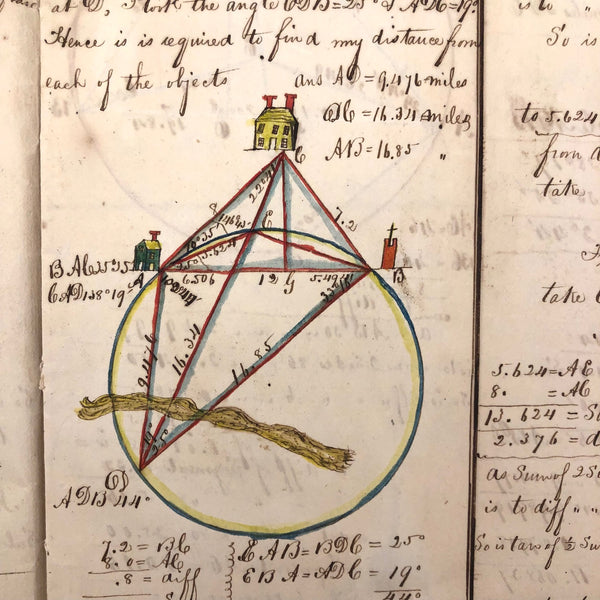 at D, I took the angle CDB = 25° & ADC = 19°
Hence is is required to find my distance from
each of the objects ans AD = 9.476 miles
DC = 16.34 miles
AB = 16.85 "
C
8
7.2
E
5.624
BAC 35°35
CAD 138°19
A
6.506
12
G
5.494
B
9.476
16.34
16.85
19°
25°
D
ADB 44°
7.2 = BC
8.0 = AC
.8 = diff
EAB = BDC = 25°
EBA = ADC = 19°
44°
is to "
So is
to 5.624
from
take
take
5.624 = AE
8. = AC
13.624 = Su
2.376 = d
as Sum of 2 S
is to diff " "
So is tan of ½ Sum